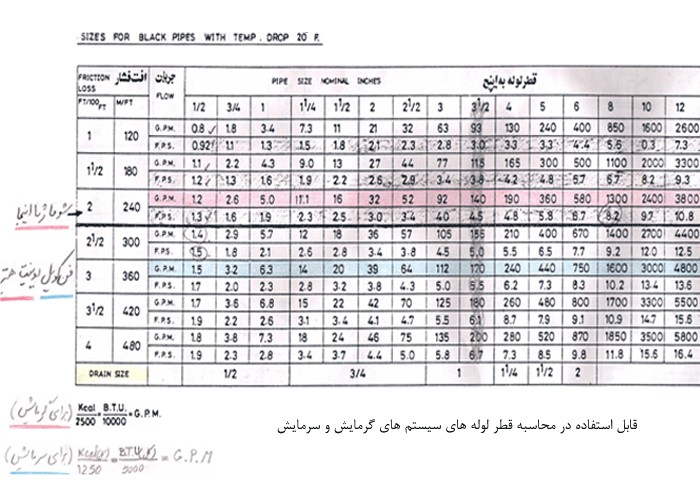 SIZES FOR BLACK PIPES WITH TEMP. DROP 20 F.
FRICTION LOSS افت فشار جریان FLOW PIPE SIZE NOMINAL INCHES قطر لوله به اینچ
FT/100 FT M/FT 1/2 3/4 1 1 1/4 1 1/2 2 2 1/2 3 3 1/2 4 5 6 8 10 12
1 120 G.P.M. 0.8 1.8 3.4 7.3 11 21 32 63 93 130 240 400 850 1600 2600
F.P.S. 0.92 1.1 1.3 1.5 1.8 2.1 2.3 2.8 3.0 3.3 3.3 4.4 5.6 0.3 7.3
1 1/2 180 G.P.M. 1.1 2.2 4.3 9.0 13 27 44 77 115 165 300 500 1100 2000 3300
F.P.S. 1.2 1.3 1.6 1.9 2.2 2.6 2.9 3.4 3.8 4.2 4.8 5.7 6.7 8.2 9.3
2 240 G.P.M. 1.2 2.6 5.0 11.1 16 32 52 92 140 190 360 580 1300 2400 3800
F.P.S. 1.3 1.6 1.9 2.3 2.5 3.0 3.4 4.0 4.5 4.8 5.8 6.7 8.2 9.7 10.8
2 1/2 300 G.P.M. 1.4 2.9 5.7 12 18 36 57 105 155 210 400 670 1400 2700 4400
F.P.S. 1.5 1.8 2.1 2.6 2.8 3.4 3.8 4.5 5.0 5.5 6.5 7.7 9.2 12.0 12.5
3 360 G.P.M. 1.5 3.2 6.3 14 20 39 64 112 170 240 440 750 1600 3000 4800
F.P.S. 1.7 2.0 2.3 2.8 3.2 3.8 4.3 5.0 5.5 6.2 7.3 8.3 10.2 13.4 13.6
3 1/2 420 G.P.M. 1.7 3.6 6.8 15 22 42 70 125 180 260 480 800 1700 3300 5500
F.P.S. 1.9 2.2 2.6 3.1 3.4 4.1 4.7 5.5 6.1 8.7 7.9 9.1 10.9 14.7 15.6
4 480 G.P.M. 1.8 3.8 7.3 18 24 46 75 135 200 280 520 870 1850 3500 5800
F.P.S. 1.9 2.3 2.8 3.4 3.7 4.4 5.0 5.8 6.7 7.3 8.5 9.8 11.8 15.6 16.4
DRAIN SIZE 1/2 3/4 1 1 1/4 1 1/2 2
(برای گرمایش) Kcal/2500 = B.T.U./10000 = G.P.M.
قابل استفاده در محاسبه قطر لوله های سیستم های گرمایش و سرمایش
(برای سرمایش) Kcal/1250 = B.T.U/5000 = G.P.M